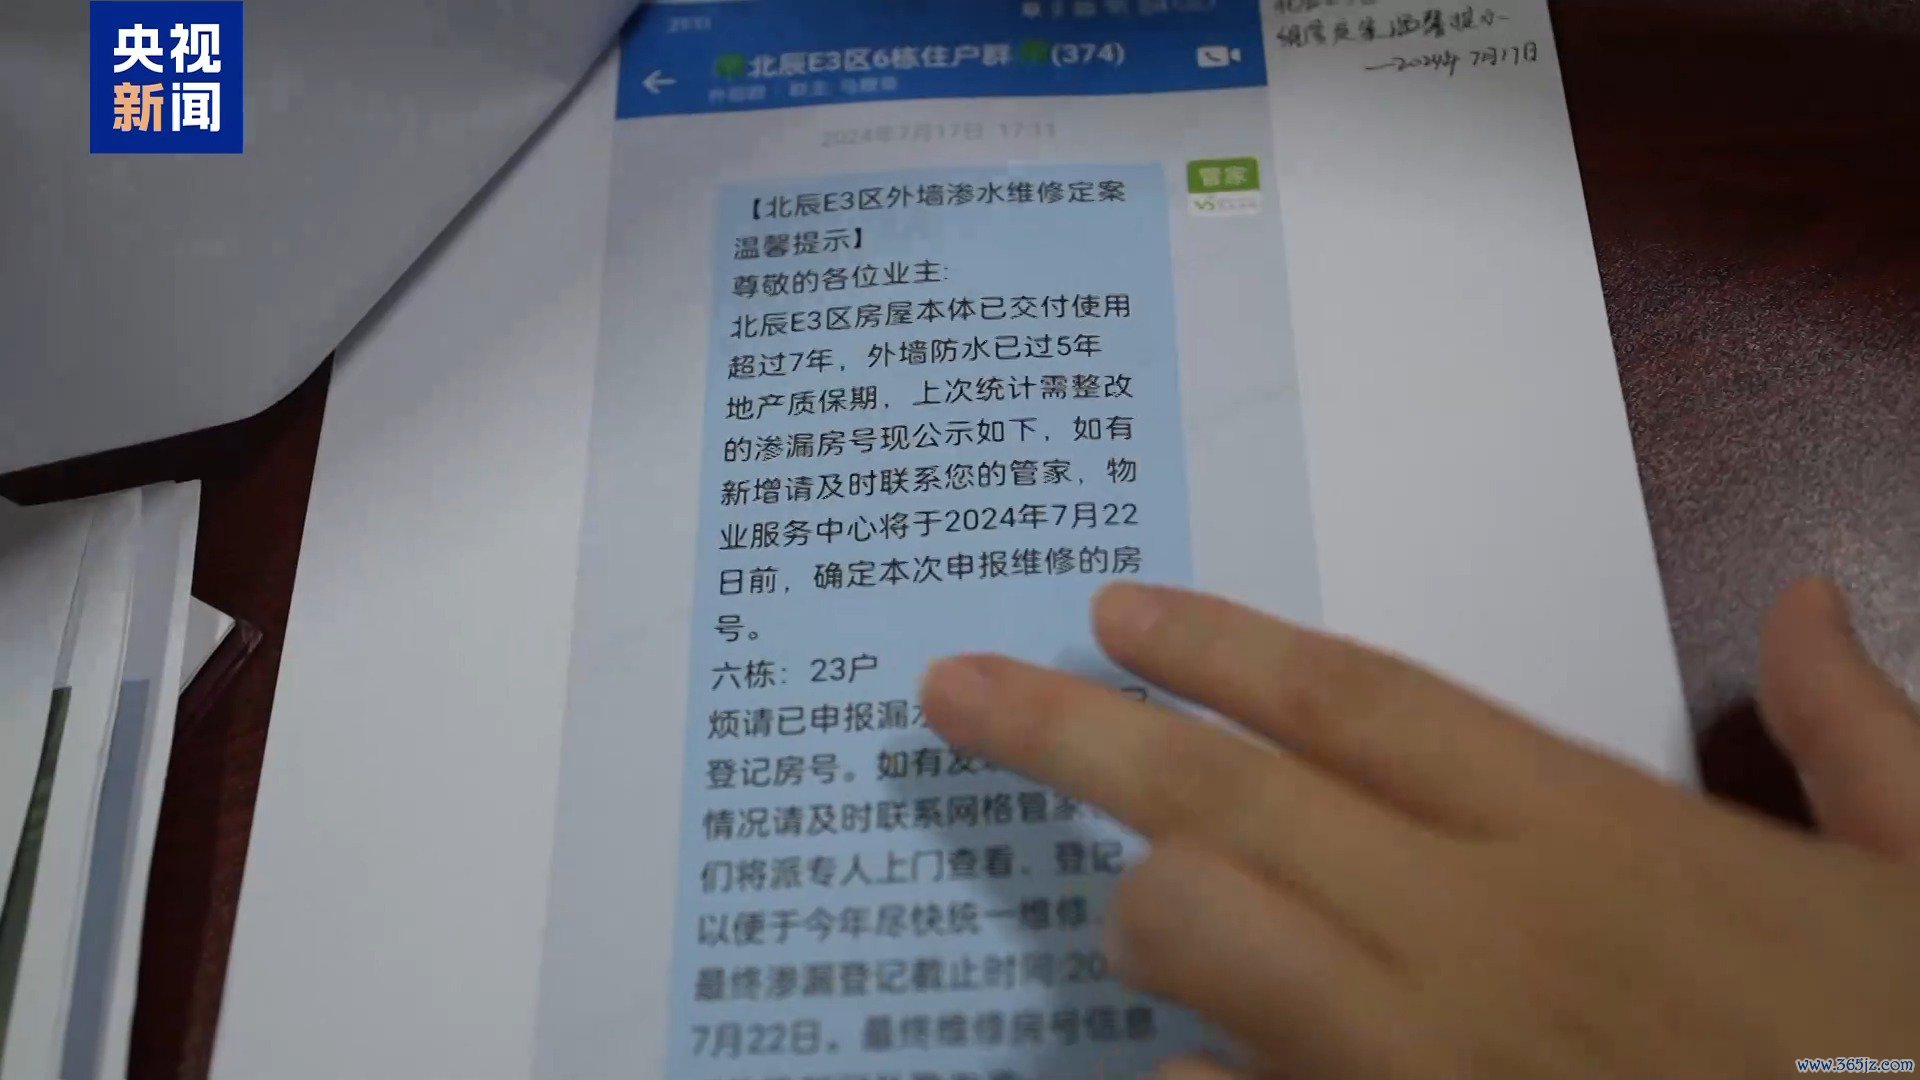 央视
新闻
北辰E3区6栋住户群 (374)
2024年7月17日 17:11
管家
温馨提示
—2024年7月17日
【北辰E3区外墙渗水维修定案
温馨提示】
尊敬的各位业主:
北辰E3区房屋本体已交付使用
超过7年，外墙防水已过5年
地产质保期，上次统计需整改
的渗漏房号现公示如下，如有
新增请及时联系您的管家，物
业服务中心将于2024年7月22
日前，确定本次申报维修的房
号。
六栋：23户
烦请已申报漏水
登记房号。如有发
情况请及时联系网格管家
们将派专人上门查看、登记
以便于今年尽快统一维修
最终渗漏登记截止时间:20
7月22日。最终维修房号信息
www.365jz.com